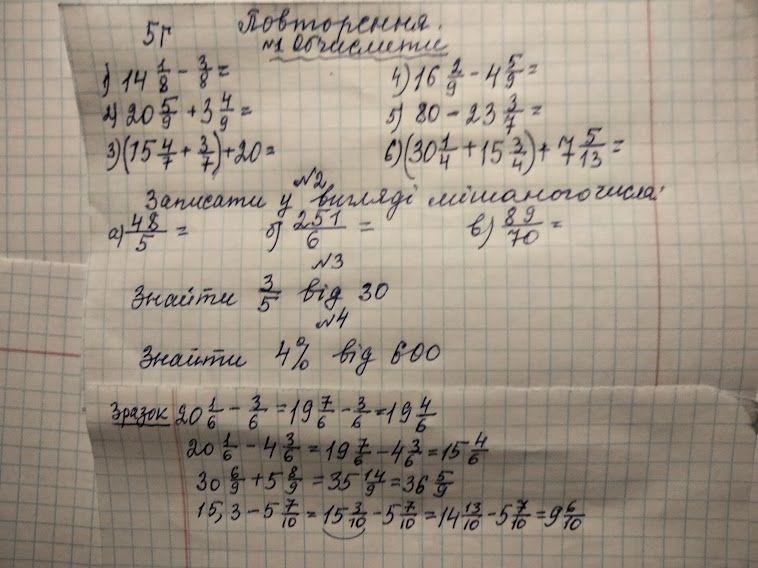 5г Повторення.
№1 Обчислити
1) 14 1/8 - 3/8 = 4) 16 2/9 - 4 5/9 =
2) 20 5/9 + 3 4/9 = 5) 80 - 23 3/7 =
3) (15 4/7 + 3/7) + 20 = 6) (30 1/4 + 15 3/4) + 7 5/13 =
№2
Записати у вигляді мішаного числа:
а) 48/5 = б) 251/6 = в) 89/70 =
№3
Знайти 3/5 від 30
№4
Знайти 4% від 600
Зразок 20 1/6 - 3/6 = 19 7/6 - 3/6 = 19 4/6
20 1/6 - 4 3/6 = 19 7/6 - 4 3/6 = 15 4/6
30 6/9 + 5 8/9 = 35 14/9 = 36 5/9
15,3 - 5 7/10 = 15 3/10 - 5 7/10 = 14 13/10 - 5 7/10 = 9 6/10